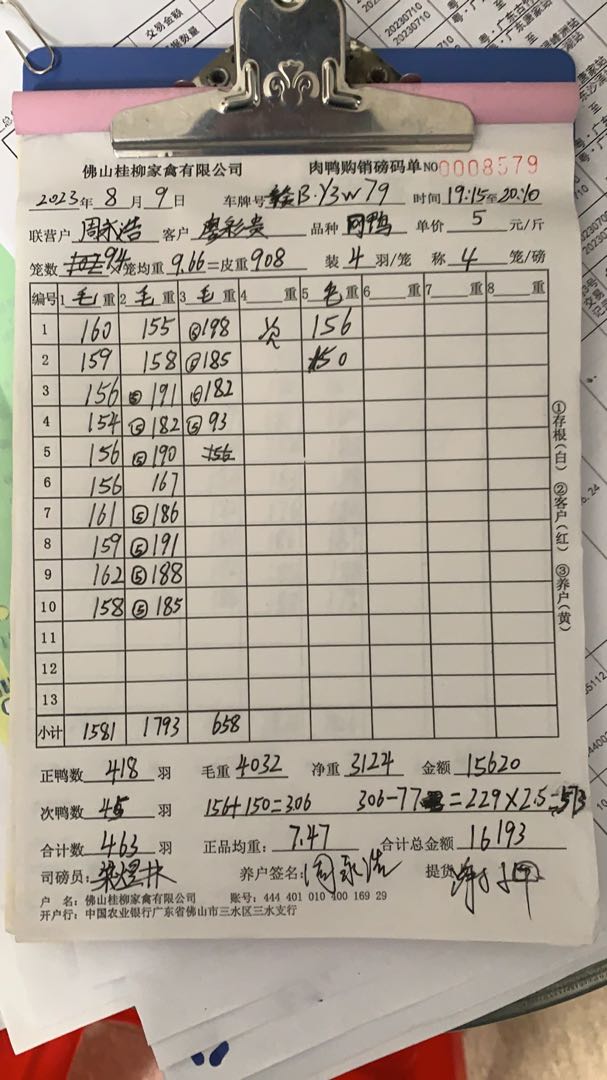 佛山桂柳家禽有限公司 肉鸭购销磅码单 NO 0008579
2023年 8 月 9 日 车牌号 赣B·Y3W79 时间 19:15至20:10
联营户 周永浩 客户 廖彩贵 品种 网鸭 单价 5 元/斤
笼数 94 笼均重 9.66=皮重 908 装 4 羽/笼 称 4 笼/磅
编号 1 毛 重 2 毛 重 3 毛 重 4 重 5 毛 重 6 重 7 重 8 重
1 160 155 ⑤198 次 156
2 159 158 ⑤185 150
3 156 ⑤191 ⑤182
4 154 ⑤182 ⑤93
5 156 ⑤190 156
6 156 167
7 161 ⑤186
8 159 ⑤191
9 162 ⑤188
10 158 ⑤185
11
12
13
小计 1581 1793 658
①存根(白) ②客户(红) ③养户(黄)
正鸭数 418 羽 毛重 4032 净重 3124 金额 15620
次鸭数 45 羽 156+150=306 306-77=229×2.5=573
合计数 463 羽 正品均重: 7.47 合计总金额 16193
司磅员: 梁煜林 养户签名: 周永浩 提货
户 名: 佛山桂柳家禽有限公司 账号: 444 401 010 400 169 29
开户行: 中国农业银行广东省佛山市三水区三水支行
交易金额
20230710